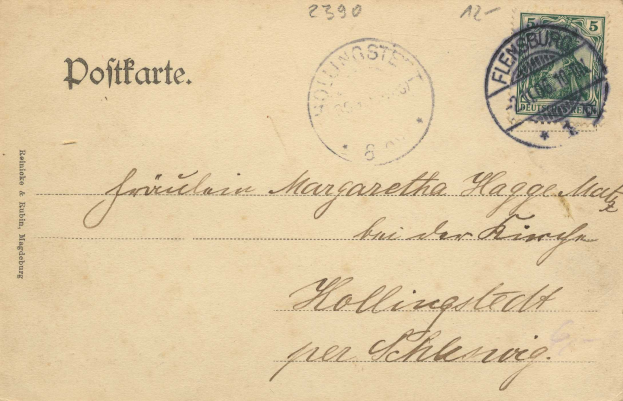 2390
12-
5 5
FLENSBURG
DEUTSCHES REICH
* 1
HOLLINGSTEDT
* 8
Postkarte.
Reinicke & Rubin, Magdeburg
Fräulein Margaretha Hagge
bei der Kirche
Hollingstedt
per Schleswig.